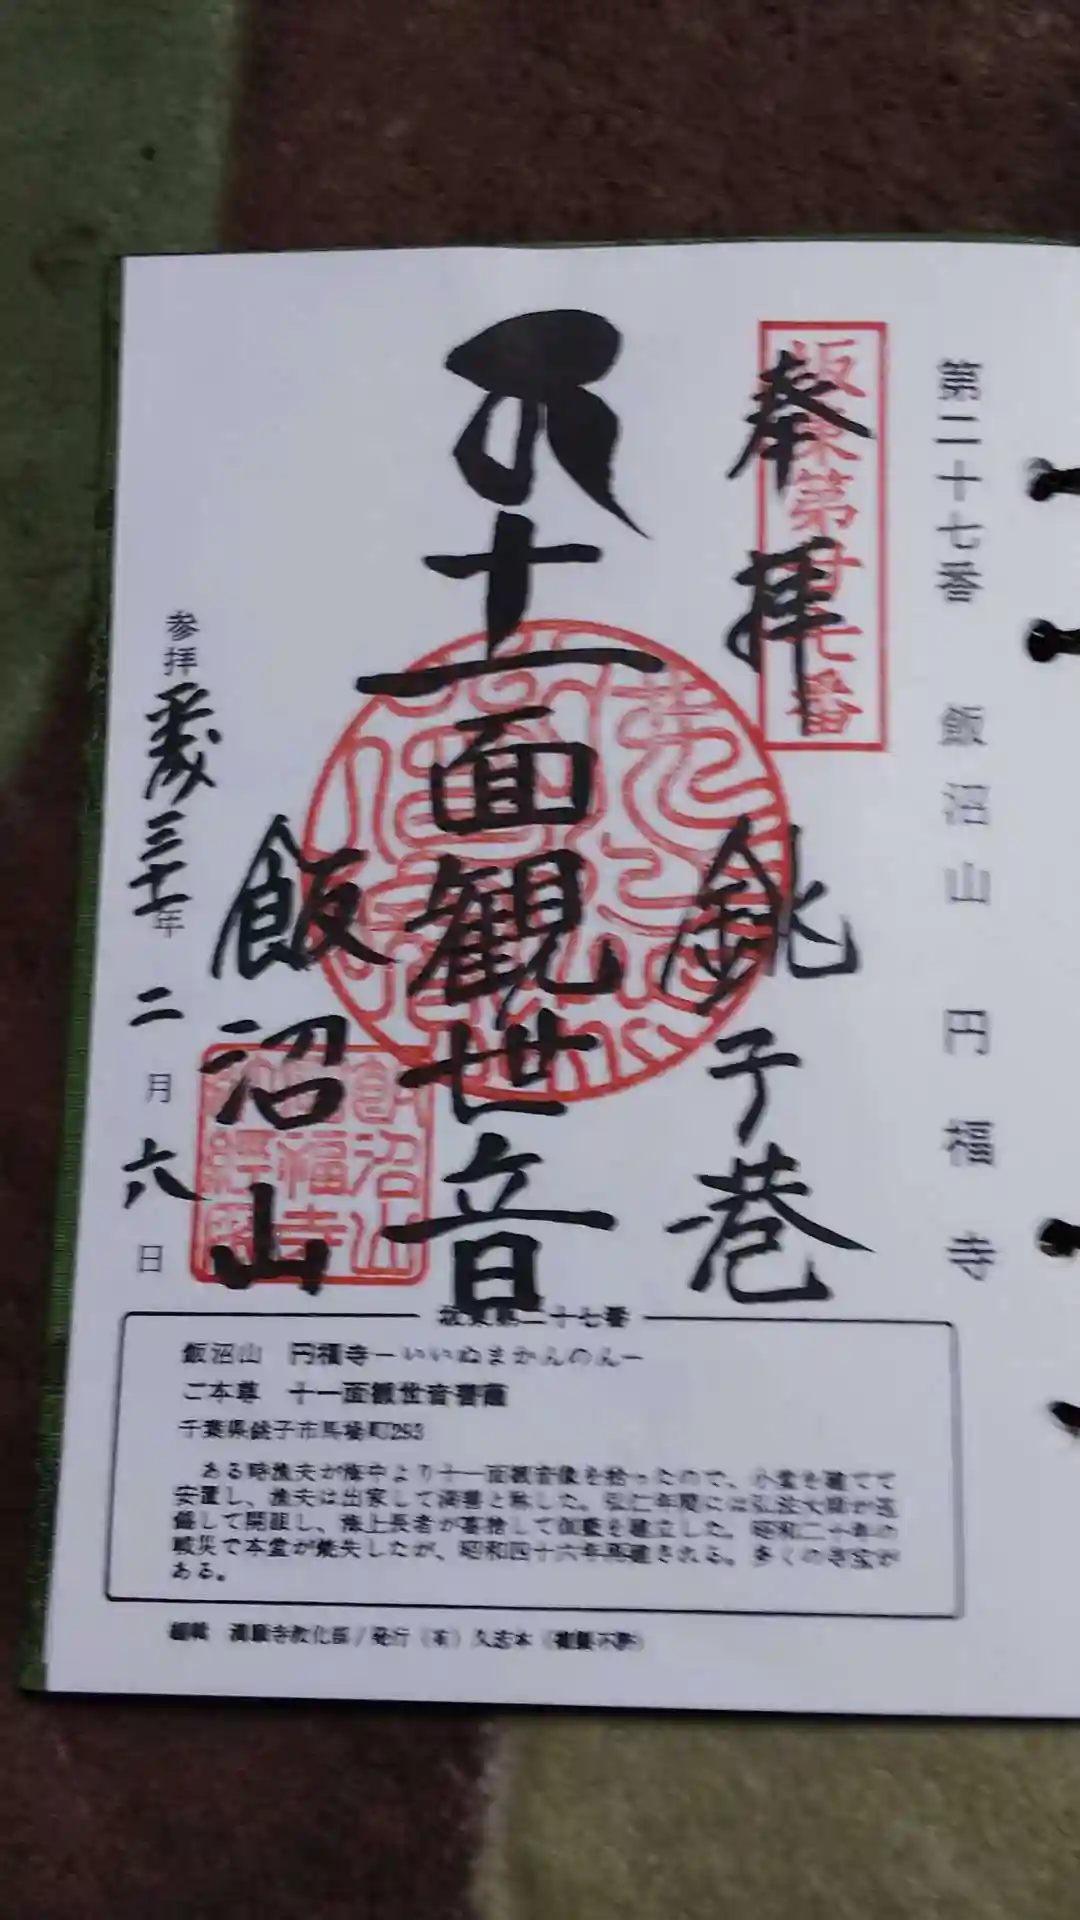 第二十七番 飯沼山 円福寺
坂東第廿七番
奉拝
銚子巷
十一面観世音
飯沼山
参拝 平成三十一年 二月 六日
坂東第二十七番
飯沼山 円福寺ーいいぬまかんのんー
ご本尊 十一面観世音菩薩
千葉県銚子市馬場町293
ある時漁夫が海中より十一面観音像を拾ったので、小堂を建てて
安置し、漁夫は出家して
と称した。弘仁年間には弘法大師が巡
錫して開眼し、海上長者が喜捨して伽藍を建立した。昭和二十年の
戦災で本堂が焼失したが、昭和四十六年再建される。多くの寺宝が
ある。
編輯 満願寺教化部/発行(有)久志本(複製不許)